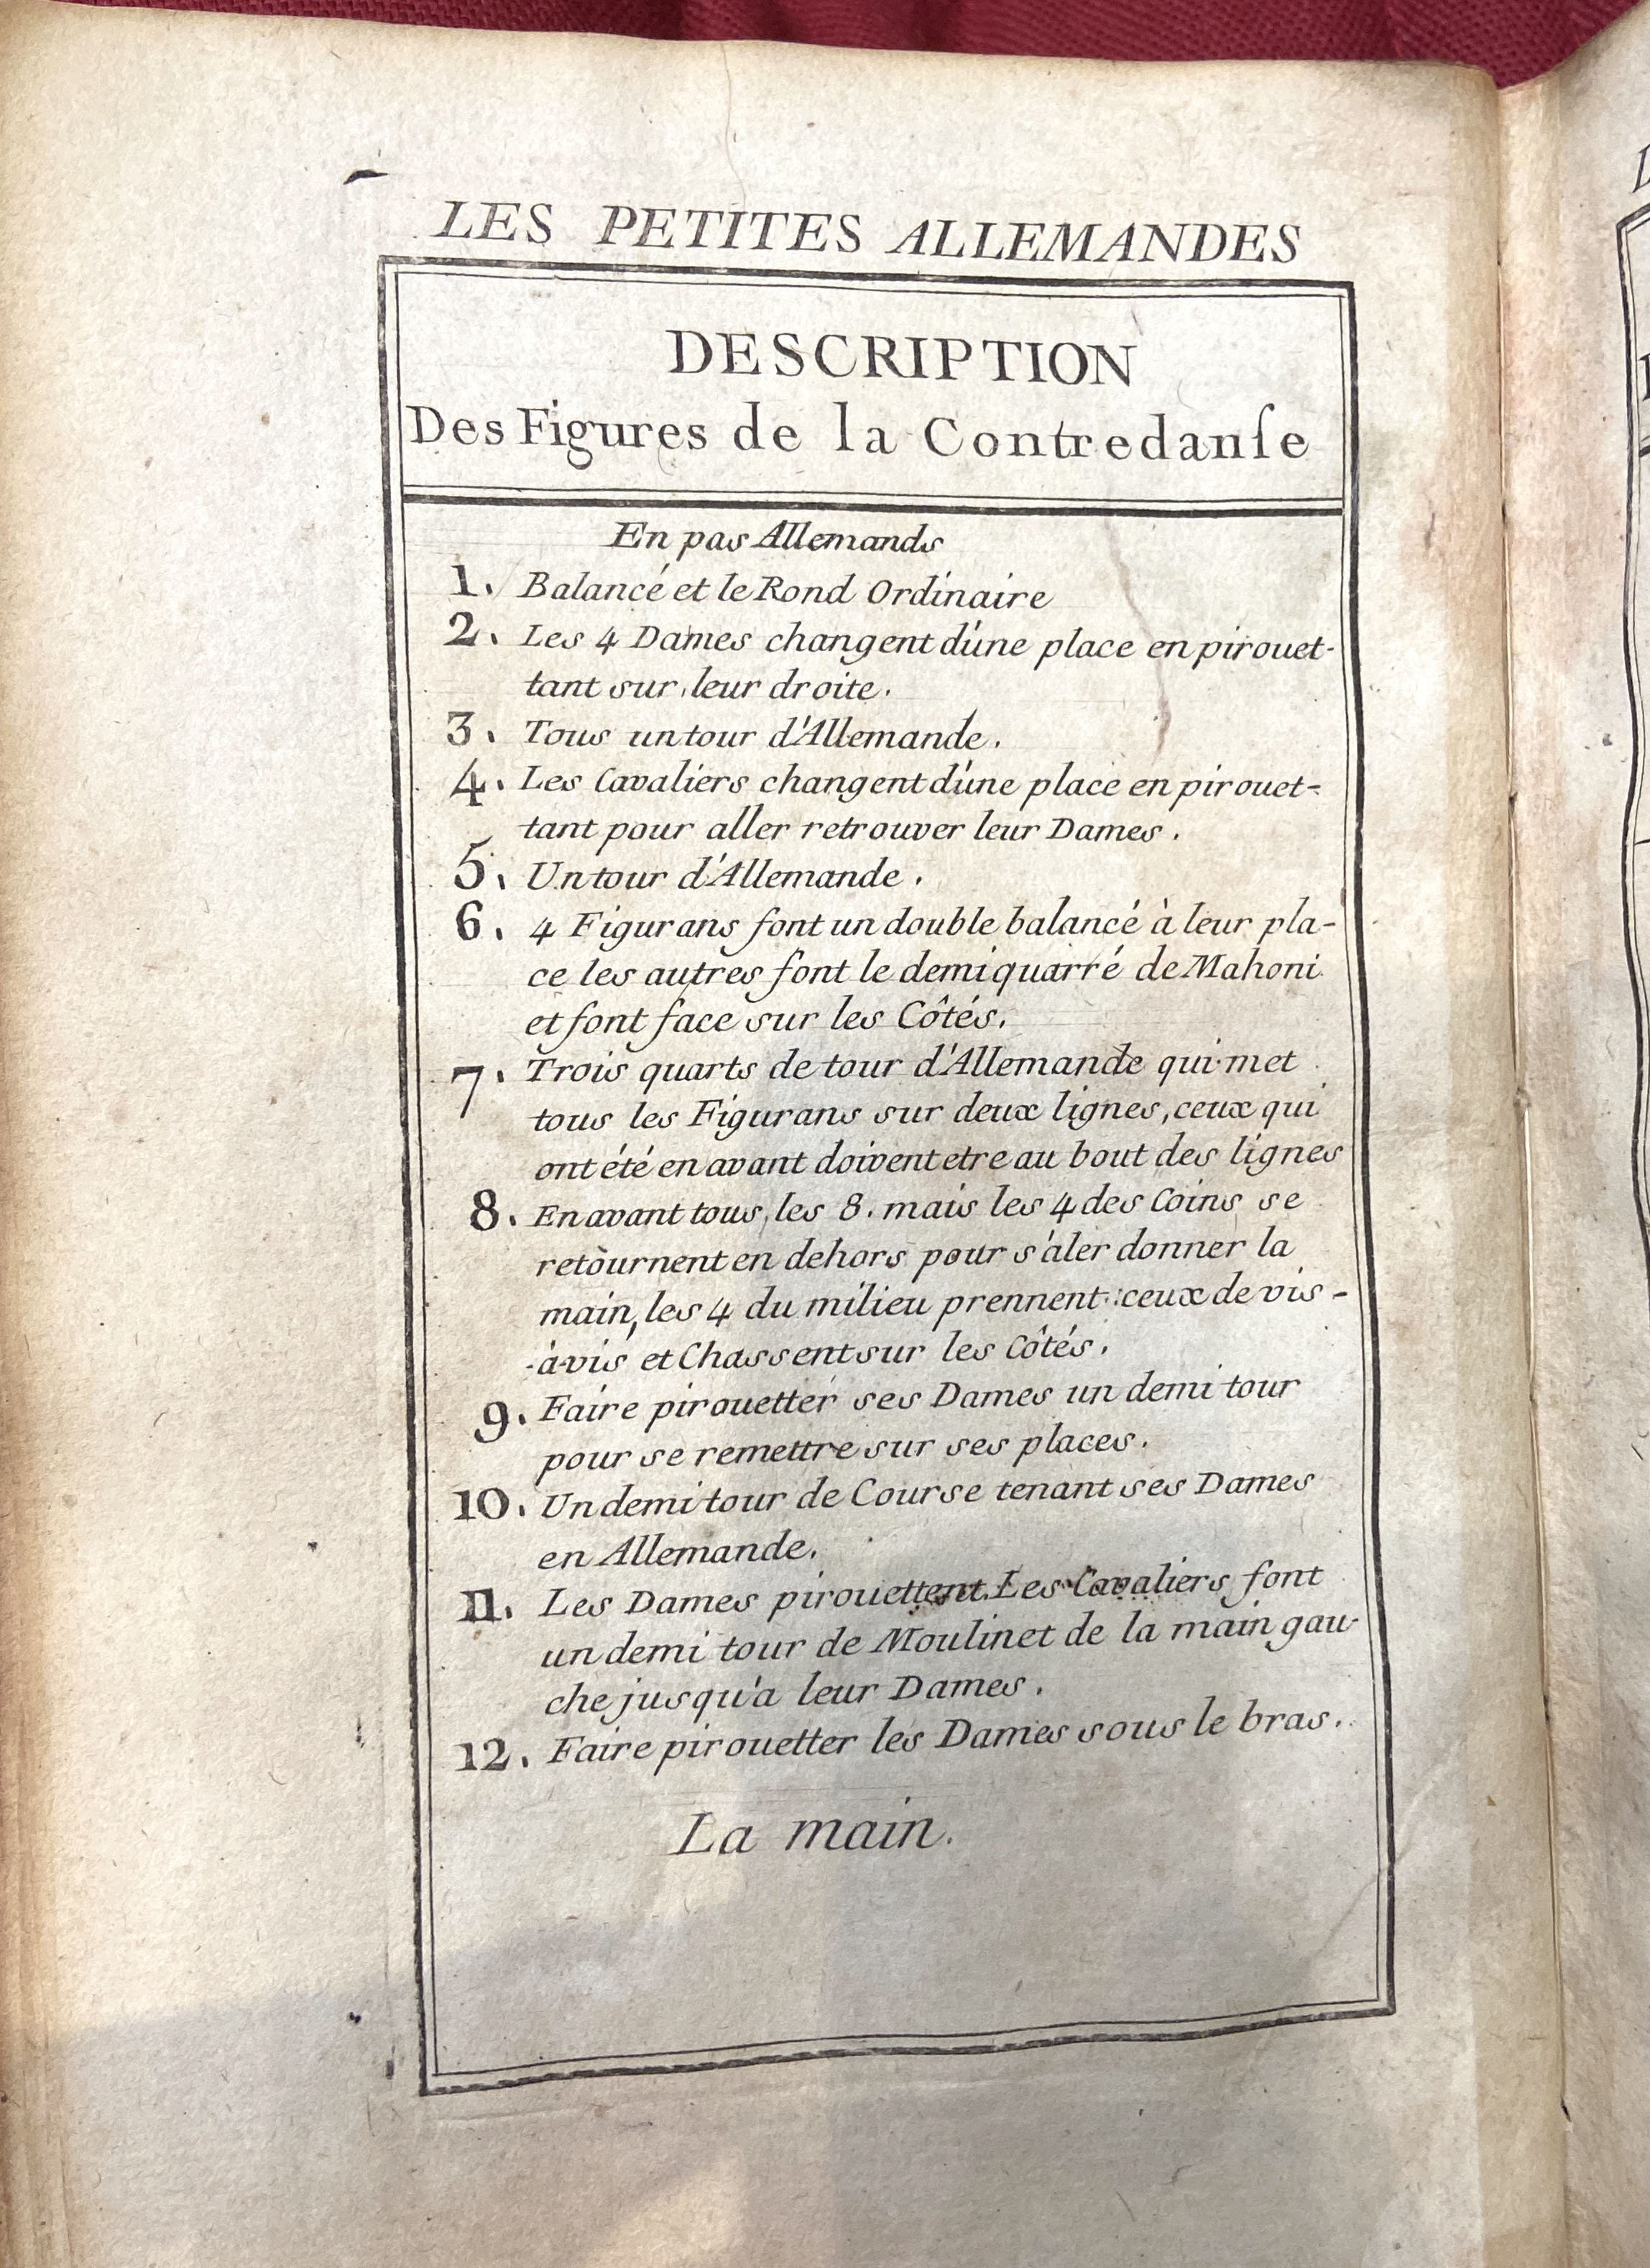 LES PETITES ALLEMANDES
DESCRIPTION
Des Figures de la Contredanſe
En pas Allemands
1. Balancé et le Rond Ordinaire
2. Les 4 Dames changent d'une place en pirouet-
tant sur leur droite.
3. Tous un tour d'Allemande.
4. Les Cavaliers changent d'une place en pirouet-
tant pour aller retrouver leur Dames.
5. Un tour d'Allemande.
6. 4 Figurans font un double balancé à leur pla-
ce les autres font le demi quarré de Mahoni
et font face sur les Côtés.
7. Trois quarts de tour d'Allemande qui met
tous les Figurans sur deux lignes, ceux qui
ont été en avant doivent etre au bout des lignes
8. En avant tous les 8. mais les 4 des Coins se
retournent en dehors pour s'aler donner la
main, les 4 du milieu prennent ceux de vis-
-à-vis et Chassent sur les Côtés.
9. Faire pirouetter ses Dames un demi tour
pour se remettre sur ses places.
10. Un demi tour de Course tenant ses Dames
en Allemande.
11. Les Dames pirouettent Les Cavaliers font
un demi tour de Moulinet de la main gau-
che jusqu'a leur Dames.
12. Faire pirouetter les Dames sous le bras.
La main.